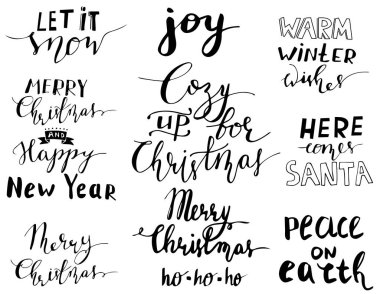 LET IT
snow
MERRY
Christmas
AND
Happy
New Year
Merry
Christmas
joy
Cozy
up for
Christmas
Merry
Christmas
ho•ho•ho
WARM
WiNTER
wishes
HERE
comes
SANTA
peace
ON
earth